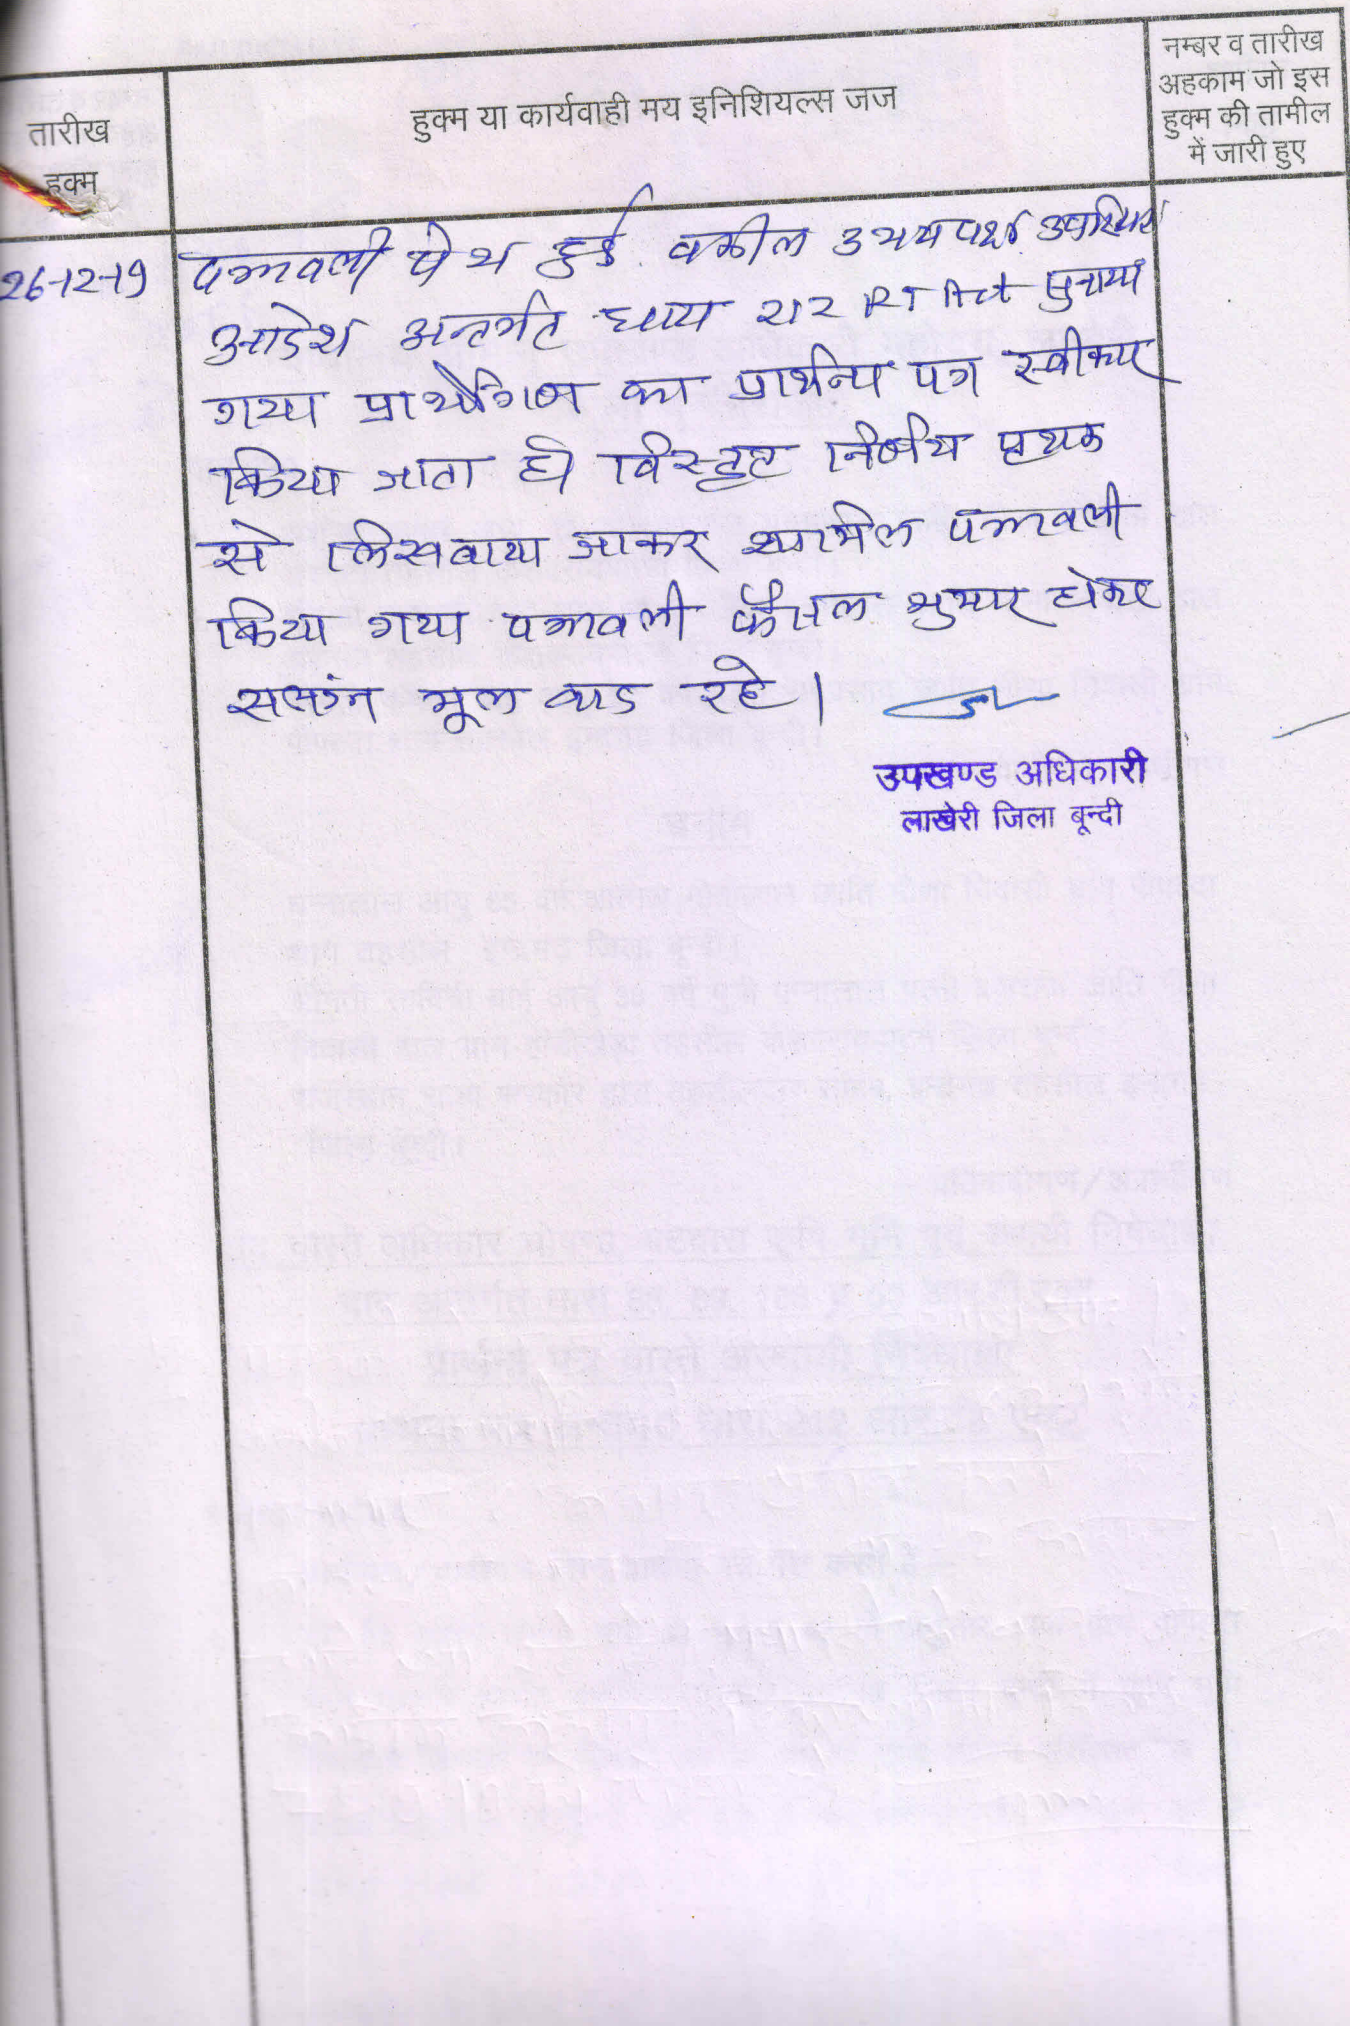 तारीख
हुक्म
हुक्म या कार्यवाही मय इनिशियल्स जज
नम्बर व तारीख
अहकाम जो इस
हुक्म की तामील
में जारी हुए
26-12-19
पत्रावली पेश हुई. वकील उभयपक्ष उपस्थित
आदेश अन्तर्गत धारा 212 RT Act सुनाया
गया प्रार्थीगण का प्रार्थना पत्र स्वीकार
किया जाता है। विस्तृत निर्णय पृथक
से लिखवाया जाकर शामिल पत्रावली
किया गया पत्रावली फैसल शुमार होकर
सलंग्न मूल वाद रहे।
उपखण्ड अधिकारी
लाखेरी जिला बून्दी